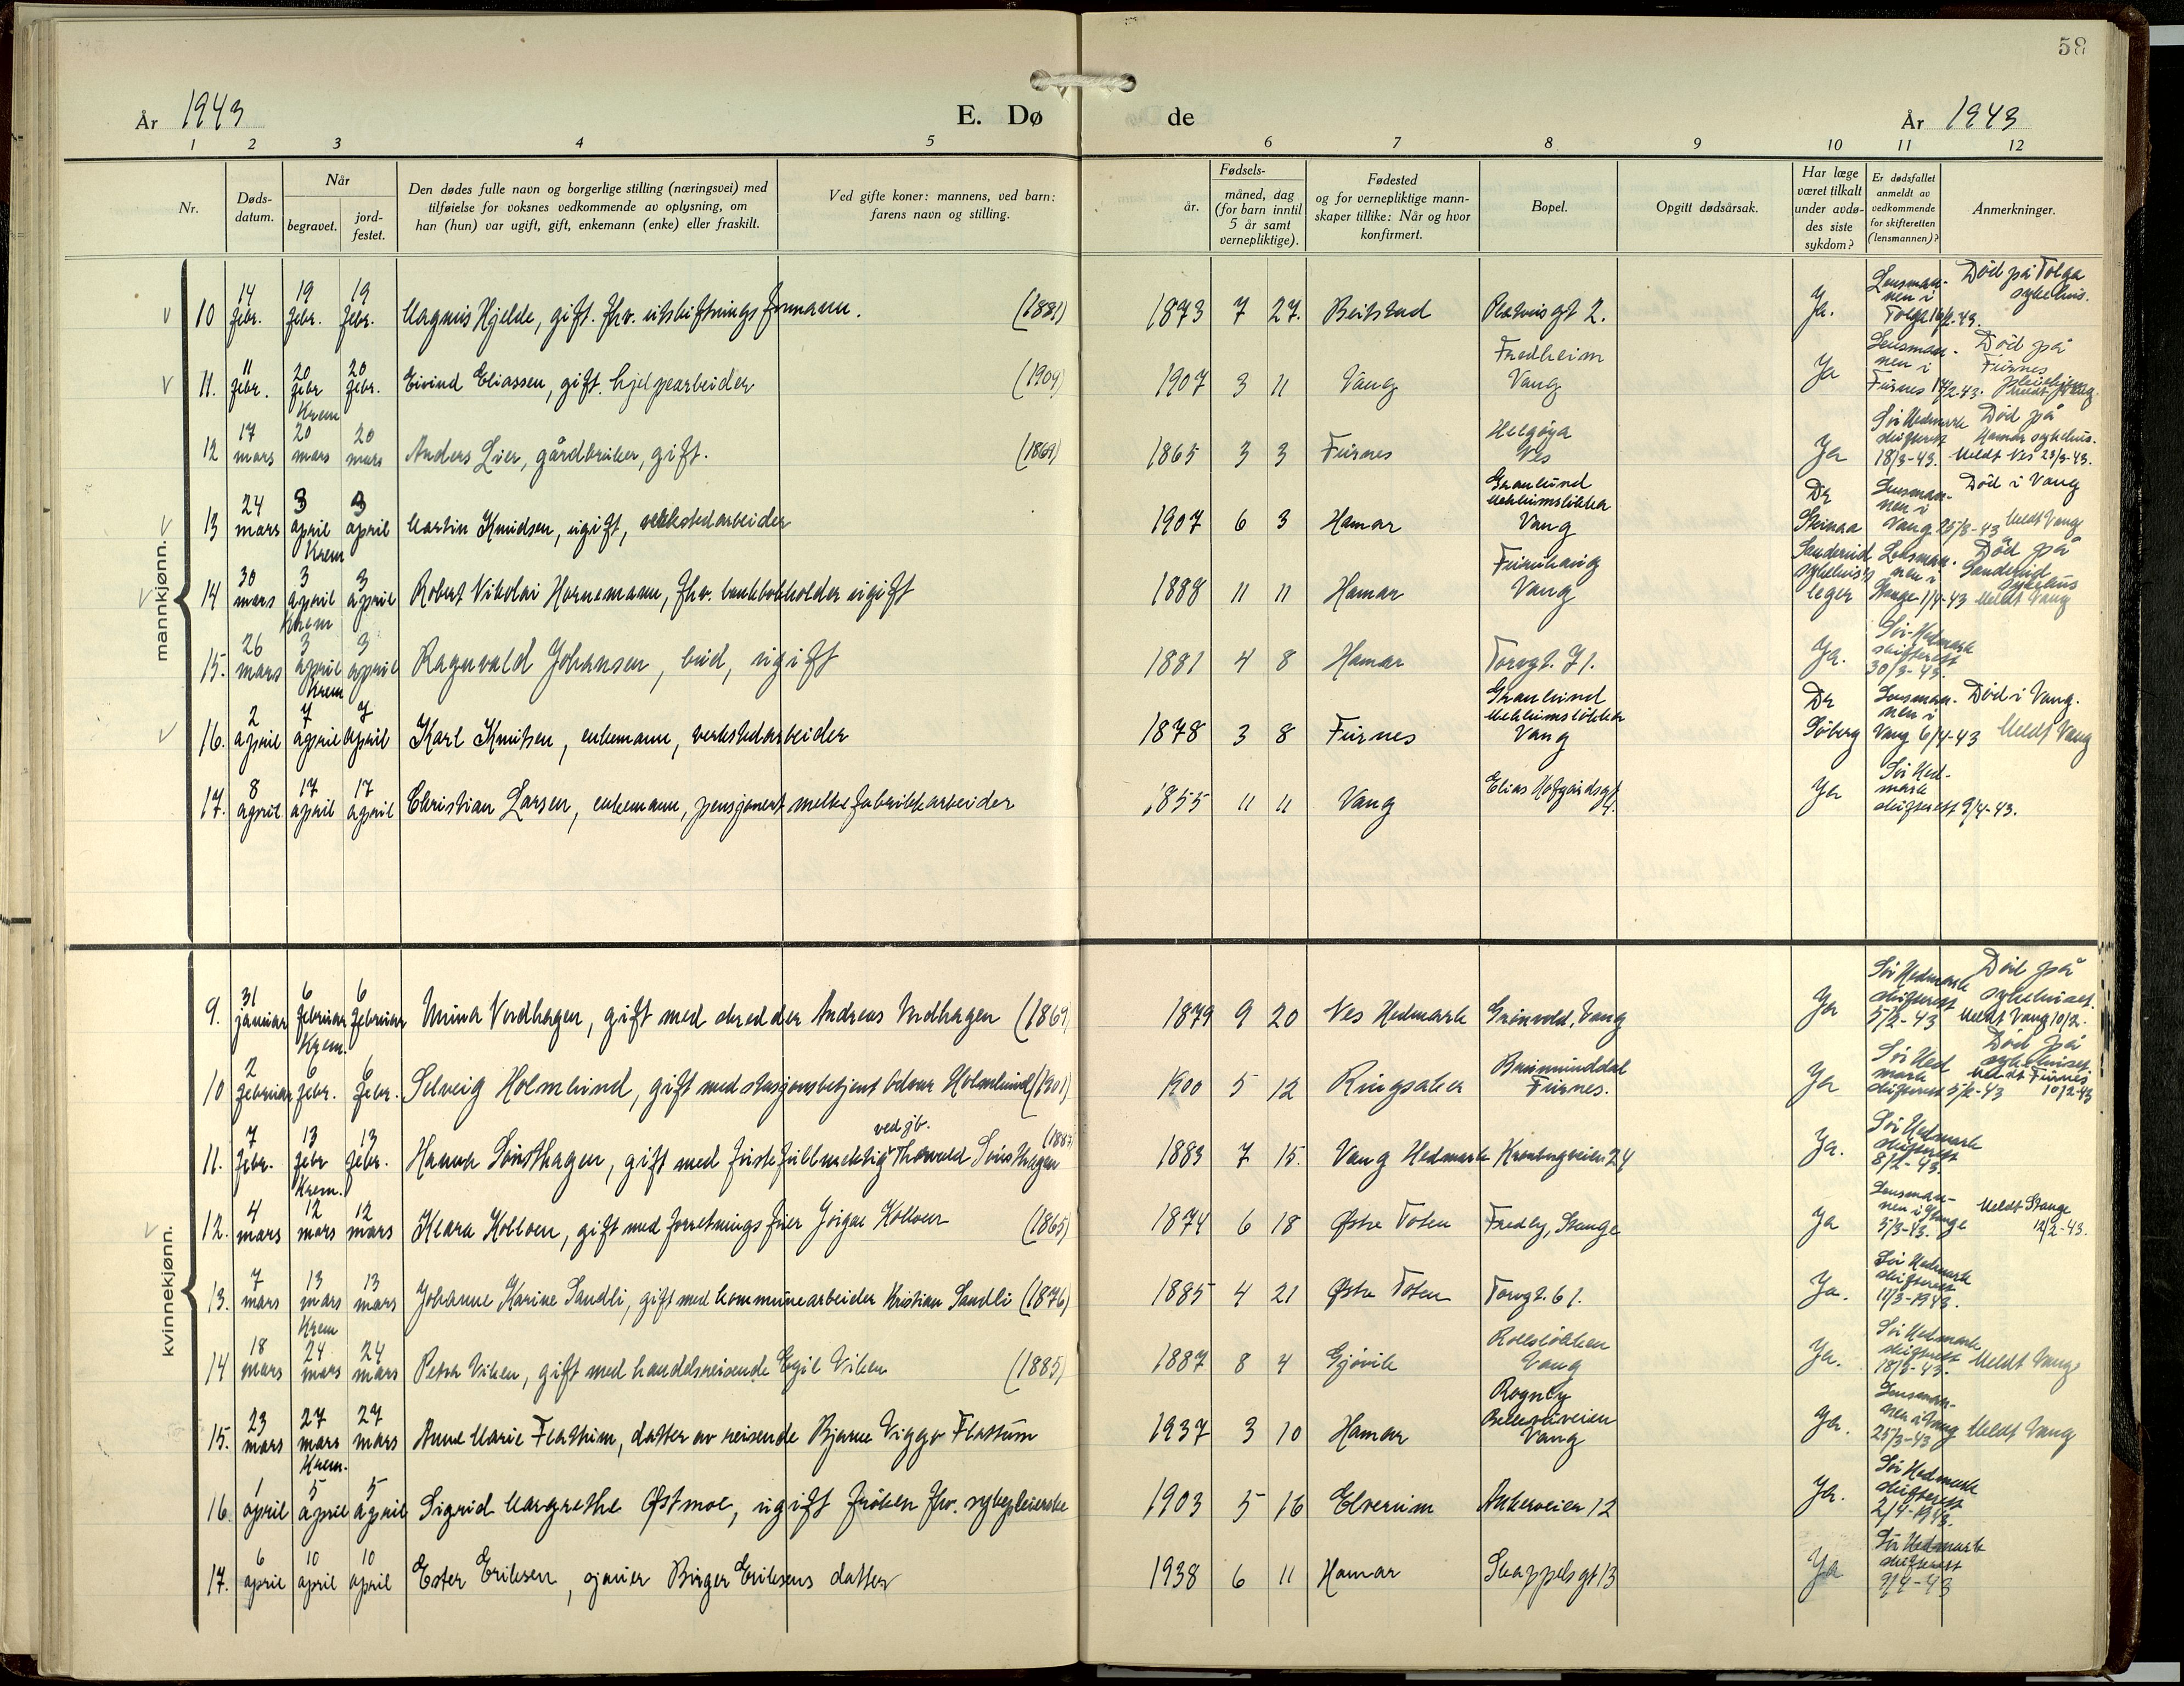 58
År 1943 E. Dø de År 1943
1 2 3 4 5 6 7 8 9 10 11 12
Nr.
Døds-
datum.
Når
begravet.
jord-
festet.
Den dødes fulle navn og borgerlige stilling (næringsvei) med
tilføielse for voksnes vedkommende av oplysning, om
han (hun) var ugift, gift, enkemann (enke) eller fraskilt.
Ved gifte koner: mannens, ved barn:
farens navn og stilling.
Fødsels-
år.
måned, dag
(for barn inntil
5 år samt
vernepliktige).
Fødested
og for vernepliktige mann-
skaper tillike: Når og hvor
konfirmert.
Bopel.
Opgitt dødsårsak.
Har læge
været tilkalt
under avdø-
des siste
sykdom?
Er dødsfallet
anmeldt av
vedkommende
for skifteretten
(lensmannen)?
Anmerkninger.
mannkjønn.
v 10 14 febr. 19 febr. 19 febr. Magnus Hjelde, gift. fhv. utskiftningsformann. (1881) 1873 7 27. Beitstad gt 2. Ja. Lensman-
nen i
Tolga 16/2-43.
Død på Tolga
sykehus.
v 11. 11 febr. 20 febr Krem 20 febr. Eivind Eliassen, gift. hjelpearbeider (1904) 1907 3 11 Vang Fredheim
Vang
Ja Lensman-
nen i
Furnes 17/2-43.
Død på
Furnes
12 17 mars 20 mars 20 mars Anders Lier, gårdbruker, gift. (1869) 1865 3 3 Furnes Helgøya
Nes
Ja Sør Hedmark
skifterett
18/3-43.
Død på
Hamar sykehus.
Meldt Nes 23/3-43.
v 13 24 mars 3 april Krem 3 april Martin Knudsen, ugift, verkstedarbeider 1907 6 3 Hamar Granlund
Vang
Dr Lensman-
nen i
Vang 25/3-43
Død i Vang
Meldt Vang
v 14 30 mars 3 april Krem 3 april Robert Nikolai Hornemann, fhv. bankbokholder ugift 1888 11 11 Hamar Furuhaug
Vang
Sanderud
sykehus's
leger
Lensman-
nen i
Stange 1/4-43
Død på
Sanderud
sykehus
Meldt Vang
15. 26 mars 3 april Krem 3 april Ragnvald Johansen, bud, ugift 1881 4 8 Hamar Torvgt. 71. Ja. Sør-Hedmark
skifterett
30/3-43.
v 16. 2 april 7 april 7 april Karl Knutsen, enkemann, verkstedarbeider 1878 3 8 Furnes Granlund
Vang
Dr
Søberg
Lensman-
nen i
Vang 6/4-43
Død i Vang.
Meldt Vang
17. 8 april 17 april 17 april Christian Larsen, enkemann, pensjonert melkefabrikkarbeider 1855 11 11 Vang Elias Hofgårdsgt
Ja Sør Hed-
mark
skifterett 9/4-43.
kvinnekjønn.
9. 31 januar 6 februar Krem. 6 februar Minna Nordhagen, gift med skredder Andreas Nordhagen (1869) 1879 9 20 Nes Hedmark Grønvold, Vang Ja Sør Hedmark
skifterett
5/2-43
Død på
sykehuset.
Meldt Vang 10/2.
10 2 februar 6 febr. 6 febr. Solveig Holmlund, gift med stasjonsbetjent Odvar Holmlund (1901) 1900 5 12 Ringsaker Brumunddal
Furnes.
Ja Sør Hed
mark
skifterett 5/2-43
Død på
sykehuset.
Meldt Furnes
10/2-43
11. 7 febr. 13 febr Krem. 13 febr. Hanna Sønsthagen, gift med første fullmektig ved jb. Thorvald Sønsthagen (1887) 1883 7 15. Vang Hedmark Kronborgveien 24 Ja. Sør Hedmark
skifterett
8/2-43.
v 12. 4 mars 12 mars 12 mars Klara Kolloen, gift med forretningsfører Jørgen Kolloen (1865) 1874 6 18 Østre Toten Fredly, Stange Ja Lensman-
nen i Stange
5/3-43.
Meldt Stange
12/2-43.
13. 7 mars 13 mars Krem 13 mars Johanne Karine Sandli, gift med kommunearbeider Kristian Sandli (1876) 1885 4 21 Østre Toten Torvgt. 61. Ja. Sør Hedmark
skifterett
11/3-1943.
14 18 mars 24 mars 24 mars Petra Viken, gift med handelsreisende Egil Viken (1885) 1887 8 4 Gjøvik Rollsløkken
Vang
Ja. Sør Hedmark
skifterett
18/3-43.
Meldt Vang
15. 23 mars 27 mars Krem. 27 mars Anne Marie Flattum, datter av reisende Bjarne Viggo Flattum 1937 3 10 Hamar Rognly
Bellevueveien
Vang
Ja. Lensman-
nen i Vang
25/3-43
Meldt Vang
16. 1 april 5 april 5 april Sigrid Margrethe Østmoe, ugift frøken fhv. sykepleierske 1903 5 16 Elverum Ankerveien 12 Ja. Sør Hedmark
skifterett
2/4-1943.
17. 6 april 10 april 10 april Ester Eriksen, Birger Eriksens datter 1938 6 11 Hamar Skappelsgt 13 Ja Sør Hedmark
skifterett
9/4-43